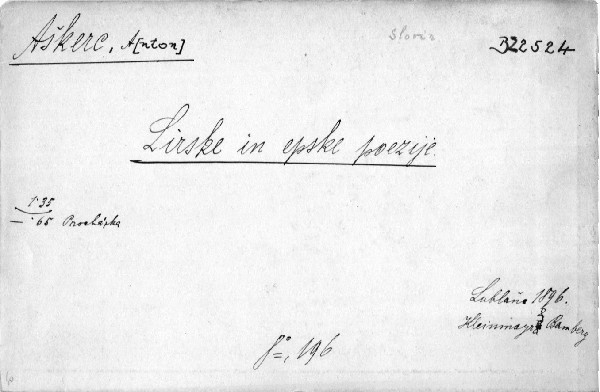 Aškerc, A[nton]
Slovin
BZ2524
Lirske in epske poezije.
1·35
—·65 Procházka
Lublaňa 1896.
Kleinmayr & Bamberg
8°=, 196